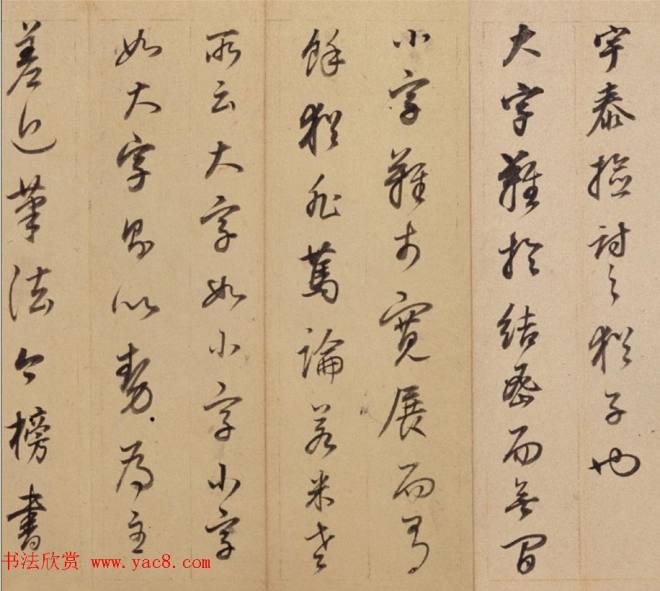 宇泰检讨之猶子也
大字難於結密而無間
小字難於寬展而有
餘猶非篤論若米老
所云大字如小字小字
如大字則以勢為主
差近筆法今榜書
书法欣赏 www.yac8.com